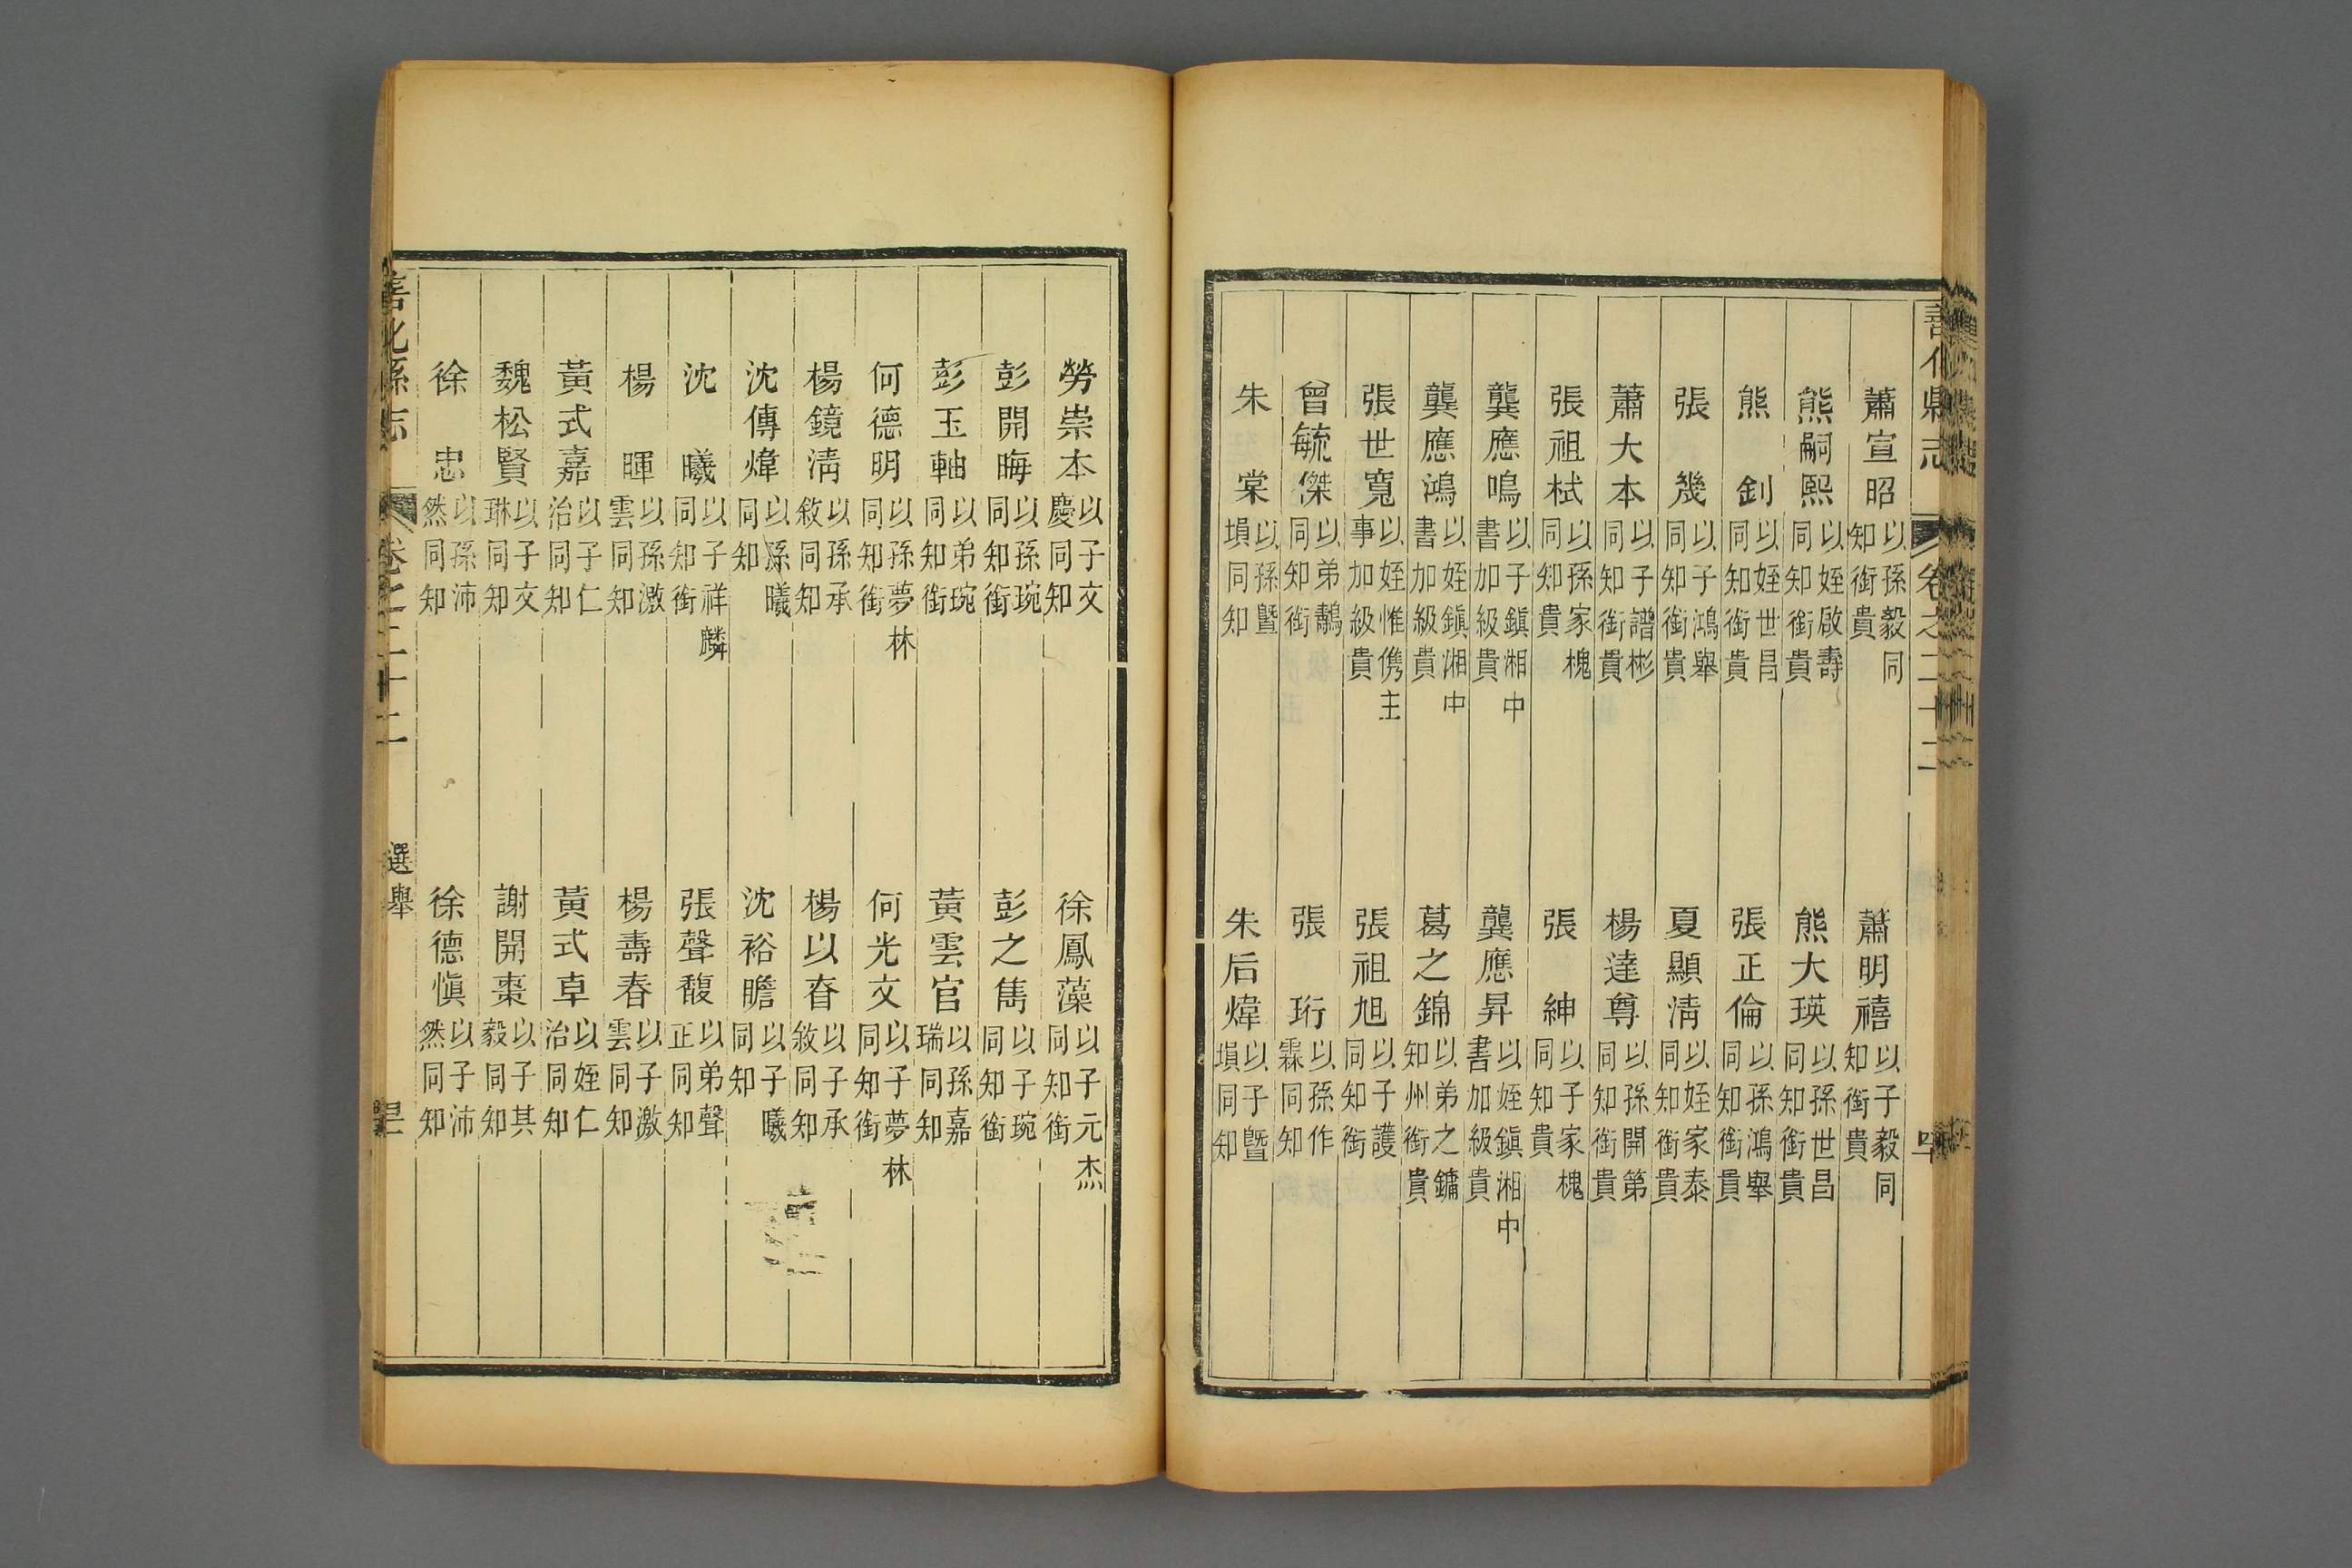 善化縣志 卷之二十二
蕭宣昭 以孫毅同知銜貴 蕭明禧 以子毅同知銜貴
熊嗣熙 以姪啟壽同知銜貴 熊大瑛 以孫世昌同知銜貴
熊釗 以姪世昌同知銜貴 張正倫 以孫鴻舉同知銜貴
張幾 以子鴻舉同知銜貴 夏顯淸 以姪家泰同知銜貴
蕭大本 以子譜彬同知銜貴 楊達尊 以孫開第同知銜貴
張祖栻 以孫家槐同知貴 張紳 以子家槐同知貴
龔應鳴 以子鎭湘中書加級貴 龔應昇 以姪鎭湘中書加級貴
龔應鴻 以姪鎭湘中書加級貴 葛之錦 以弟之鏞知州銜貴
張世寬 以姪惟儁主事加級貴 張祖旭 以子護同知銜
曾毓傑 以弟鷸同知銜 張珩 以孫作霖同知
朱棠 以孫曁塤同知 朱后煒 以子曁塤同知
勞崇本 以子文慶同知 徐鳳藻 以子元杰同知銜
彭開晦 以孫琬同知銜 彭之雋 以子琬同知銜
彭玉軸 以弟琬同知銜 黃雲官 以孫嘉瑞同知
何德明 以孫夢林同知銜 何光文 以子夢林同知銜
楊鏡淸 以孫承敘同知 楊以春 以子承敘同知
沈傳煒 以孫曦同知 沈裕瞻 以子曦同知
沈曦 以子祥麟同知銜 張聲馥 以弟聲正同知
楊暉 以孫激雲同知 楊壽春 以子激雲同知
黃式嘉 以子仁治同知 黃式卓 以姪仁治同知
魏松賢 以子文琳同知 謝開棗 以子其毅同知
徐忠 以孫沛然同知 徐德愼 以子沛然同知
善化縣志 卷之二十二 選舉